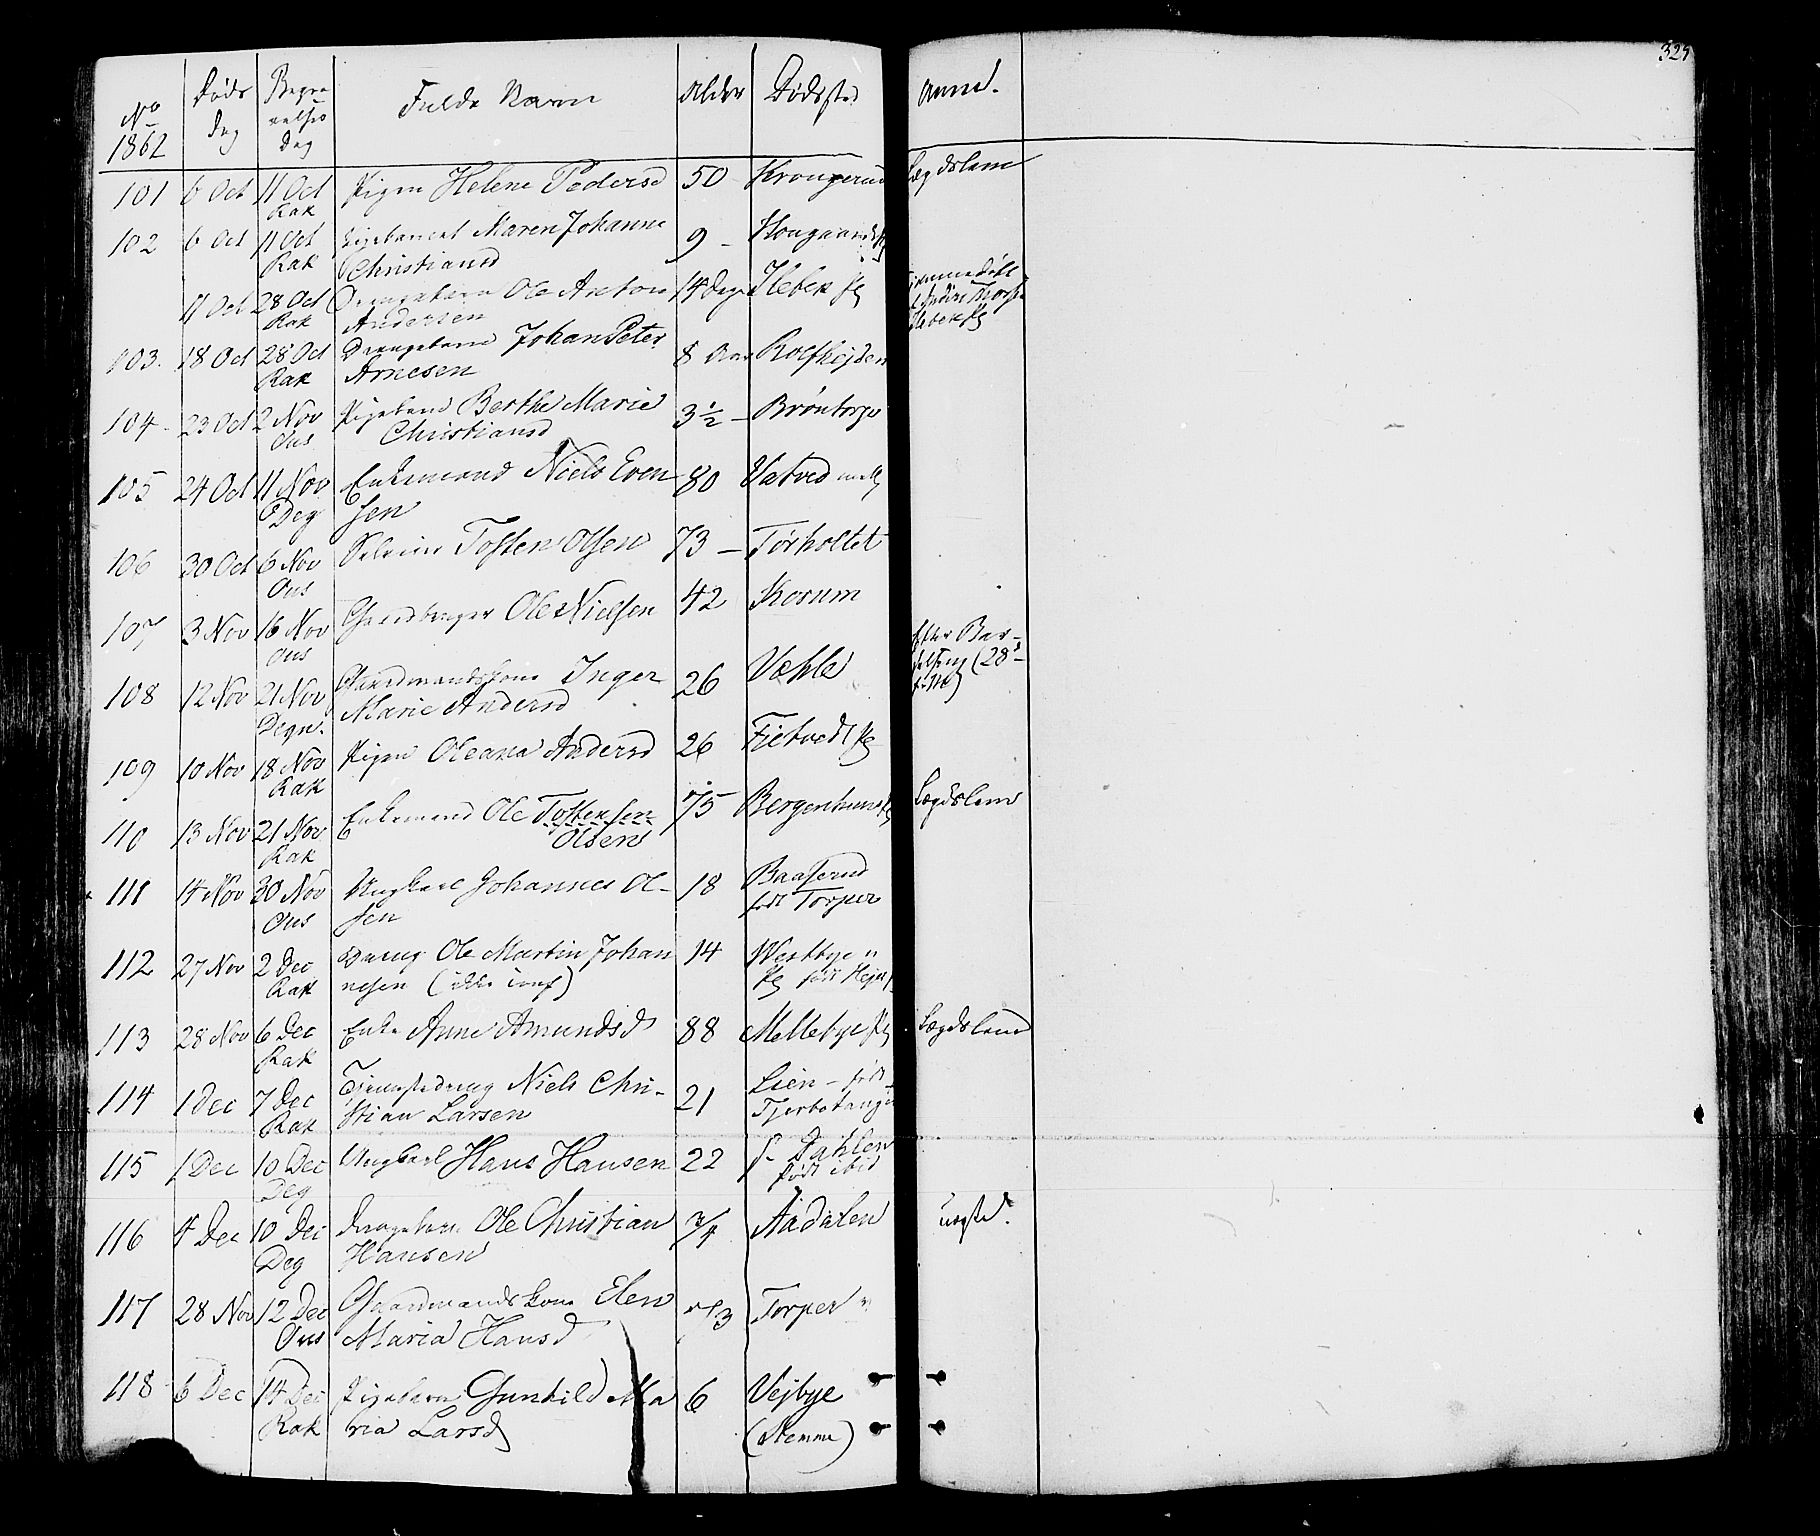 No 1862 Døds Dag Begravelses Dag Fulde Navn Alder Dødssted Anm.
329
101 6 Oct 11 Oct Pigen Helene Pedersd 50 Krongerud Lægdslem
Rak
102 6 Oct 11 Oct Pigebarnet Maren Johanne 9 - Hougaard
Rak Christiansd
11 Oct 28 Oct Drengebarn Ole Anton 14 Dage Ilebek
Rak Andersen
103. 18 Oct 28 Oct Drengebarn Johan Peter 8 Aar Rolfhejden
Rak Arnesen
104 - 23 Oct 2 Nov Pigebarn Berthe Marie 3½ - Brøntorp
Ous Christiansd
105 24 Oct 11 Nov Enkemand Niels Even 80 Vatved
Deg sen
106 30 Oct 6 Nov Tosten Olsen 73 - Tørholtet
Ous
107 3 Nov 16 Nov Gaardbruger Ole Nielsen 42 Korum
Ous
108 12 Nov 21 Nov Gaardmandskone Inger 26 Væhle Efter Bar-
Degn. Marie Andersd selseng (28d
109 10 Nov 18 Nov Pigen Oleana Andersd 26 Fietvedt
Rak
110 13 Nov 21 Nov Enkemand Ole Tostensen 75 Bergenhuus Lægdslem
Rak Olsen
111 14 Nov 30 Nov Ungkarl Johannes Ol- 18 Baaserud
Ous sen født Torper
112 27 Nov 2 Dec Dreng Ole Martin Johan 14 Westbye
Rak nesen (ikke conf) født
113 28 Nov 6 Dec Enke Anne Amundsd 88 Mellebye Lægdslem
Rak
114 1 Dec 7 Dec Tjenestedreng Niels Chri- 21 Lien - født
Rak stian Larsen
115 1 Dec 10 Dec Ungkarl Hans Hansen 22 Dahlen
Deg født ibid
116 4 Dec 10 Dec Drengebarn Ole Christian 3/4 Aadalen uægte.
Deg Hansen
117 28 Nov 12 Dec Gaardmandskone Elen Torper
Ous Maria Hansd
118 6 Dec 14 Dec Pigebarn Gunhild Ma 6 Vejbye
Rak ria Larsd (Stemme)